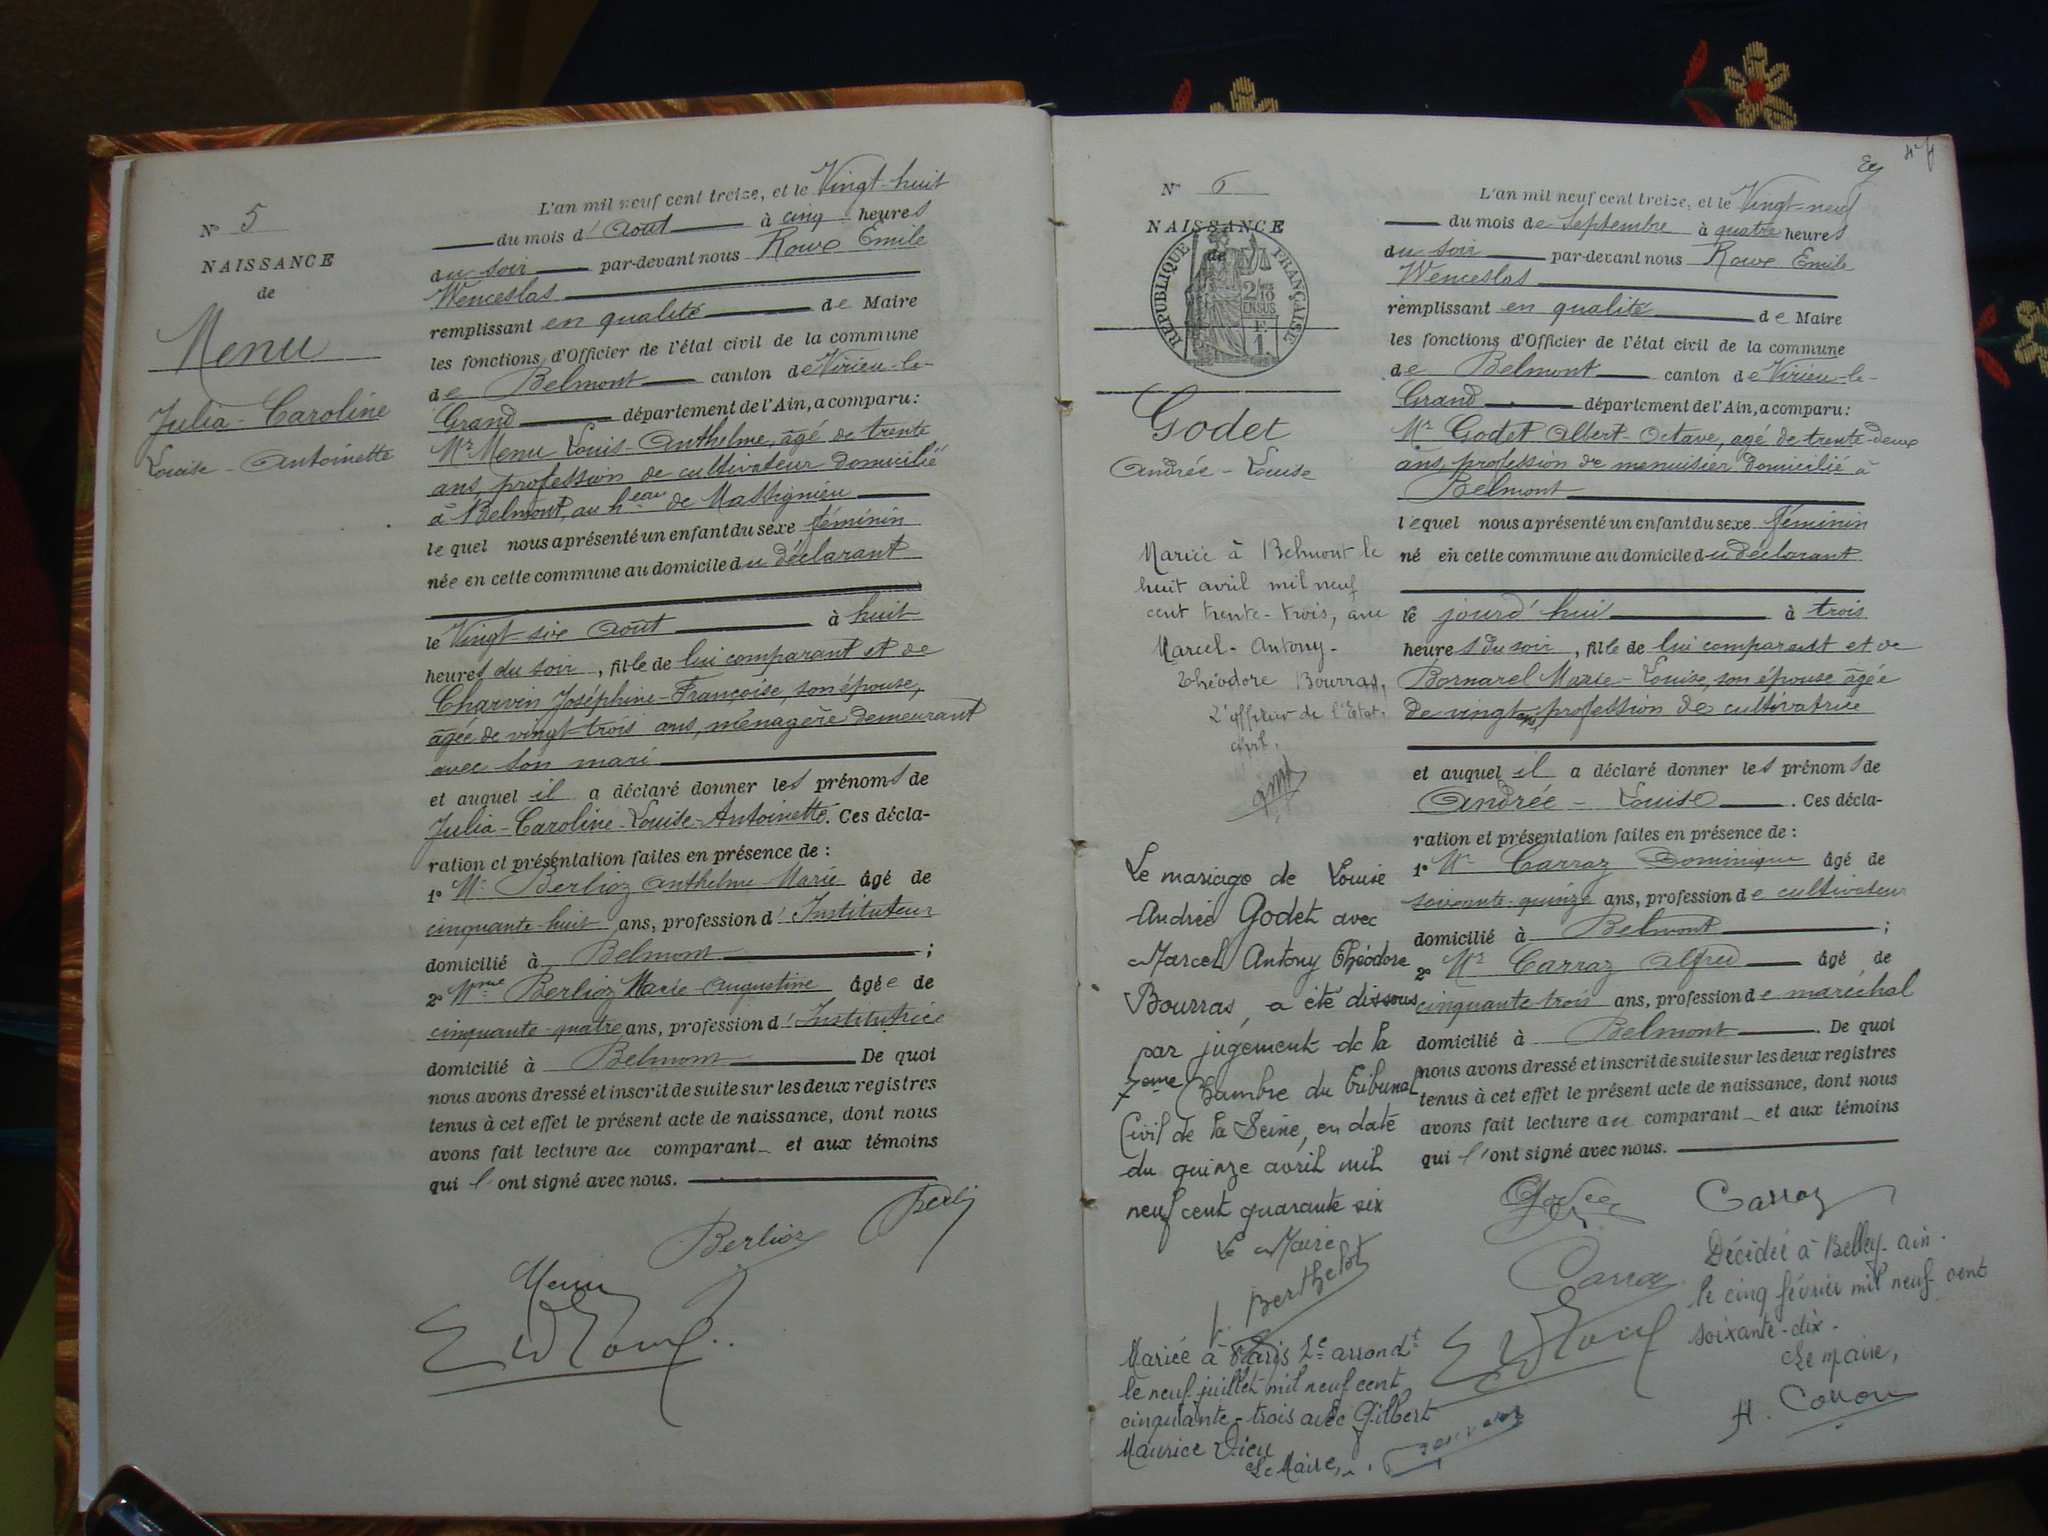 N° 5
NAISSANCE
de
Menu
Julia-Caroline
Louise-Antoinette
L'an mil neuf cent treize, et le Vingt-huit
du mois d'Août à cinq heures
du soir par-devant nous Roux Emile
Wenceslas
remplissant en qualité de Maire
les fonctions d'Officier de l'état civil de la commune
de Belmont canton de Virieu-le-
Grand département de l'Ain, a comparu :
Mr Menu Louis-Anthelme, âgé de trente
ans, profession de cultivateur domicilié
à Belmont, au heau de Massignieu
lequel nous a présenté un enfant du sexe féminin
née en cette commune au domicile du déclarant
le Vingt six Août à huit
heures du soir, fille de lui comparant et de
Charvin Joséphine-Françoise, son épouse,
âgée de vingt-trois ans, ménagère demeurant
avec son mari
et auquel il a déclaré donner les prénoms de
Julia-Caroline-Louise-Antoinette. Ces décla-
ration et présentation faites en présence de :
1° Mr Berlioz Anthelme Marie âgé de
cinquante-huit ans, profession d'Instituteur
domicilié à Belmont ;
2° Mme Berlioz Marie Augustine âgée de
cinquante-quatre ans, profession d'Institutrice
domicilié à Belmont De quoi
nous avons dressé et inscrit de suite sur les deux registres
tenus à cet effet le présent acte de naissance, dont nous
avons fait lecture au comparant et aux témoins
qui l'ont signé avec nous.
Berlioz
Menu
N° 6
NAISSANCE
de
RÉPUBLIQUE FRANÇAISE
2/10 EN SUS
1
Godet
Andrée-Louise
Mariée à Belmont le
huit avril mil neuf
cent trente-trois, avec
Marcel-Antony-
Théodore Bourras,
L'officier de l'Etat-
civil.
Le mariage de Louise
Andrée Godet avec
Marcel Antony Théodore
Bourras, a été dissous
par jugement de la
7eme Chambre du tribunal
Civil de la Seine, en date
du quinze avril mil
neuf cent quarante six
Le Maire
Berthelot
Mariée à Paris 2e arrondt
le neuf juillet mil neuf cent
cinquante-trois avec Gilbert
Maurice Dieu
Le Maire,
L'an mil neuf cent treize, et le Vingt-neuf
du mois de Septembre à quatre heures
du soir par-devant nous Roux Emile
Wenceslas
remplissant en qualité de Maire
les fonctions d'Officier de l'état civil de la commune
de Belmont canton de Virieu-le-
Grand département de l'Ain, a comparu :
Mr Godet Albert-Octave, agé de trente-deux
ans, profession de menuisier domicilié à
Belmont
lequel nous a présenté un enfant du sexe féminin
né en cette commune au domicile du déclarant
le jourd'hui à trois
heures du soir, fille de lui comparant et de
Bornarel Marie-Louise, son épouse âgée
de vingt ans, profession de cultivatrice
et auquel il a déclaré donner les prénoms de
Andrée-Louise. Ces décla-
ration et présentation faites en présence de :
1° Mr Carraz Dominique âgé de
soixante-quinze ans, profession de cultivateur
domicilié à Belmont ;
2° Mr Carraz Alfred âgé de
cinquante-trois ans, profession de maréchal
domicilié à Belmont. De quoi
nous avons dressé et inscrit de suite sur les deux registres
tenus à cet effet le présent acte de naissance, dont nous
avons fait lecture au comparant et aux témoins
qui l'ont signé avec nous.
Godet Carraz
Carraz
Décédée à Belley-ain.
le cinq février mil neuf cent
soixante-dix.
Le maire,